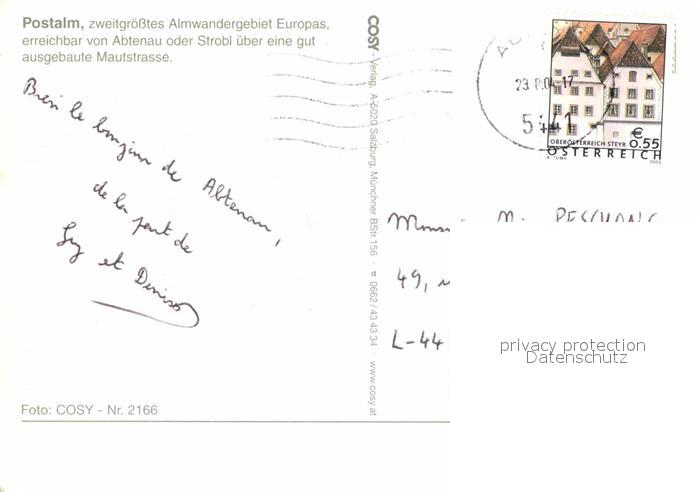 Postalm, zweitgrößtes Almwandergebiet Europas,
erreichbar von Abtenau oder Strobl über eine gut
ausgebaute Mautstrasse.
Bien le bonjour de Abtenau,
de la part de
Guy et Denise
Foto: COSY - Nr. 2166
COSY - Verlag, A-5020 Salzburg, Münchner BStr. 156 · ☎ 0662 / 43 43 34 · www.cosy.at
€
0,55
OBERÖSTERREICH STEYR
ÖSTERREICH
A. TUMA 2003
M.
49,
L-44
privacy protection
Datenschutz